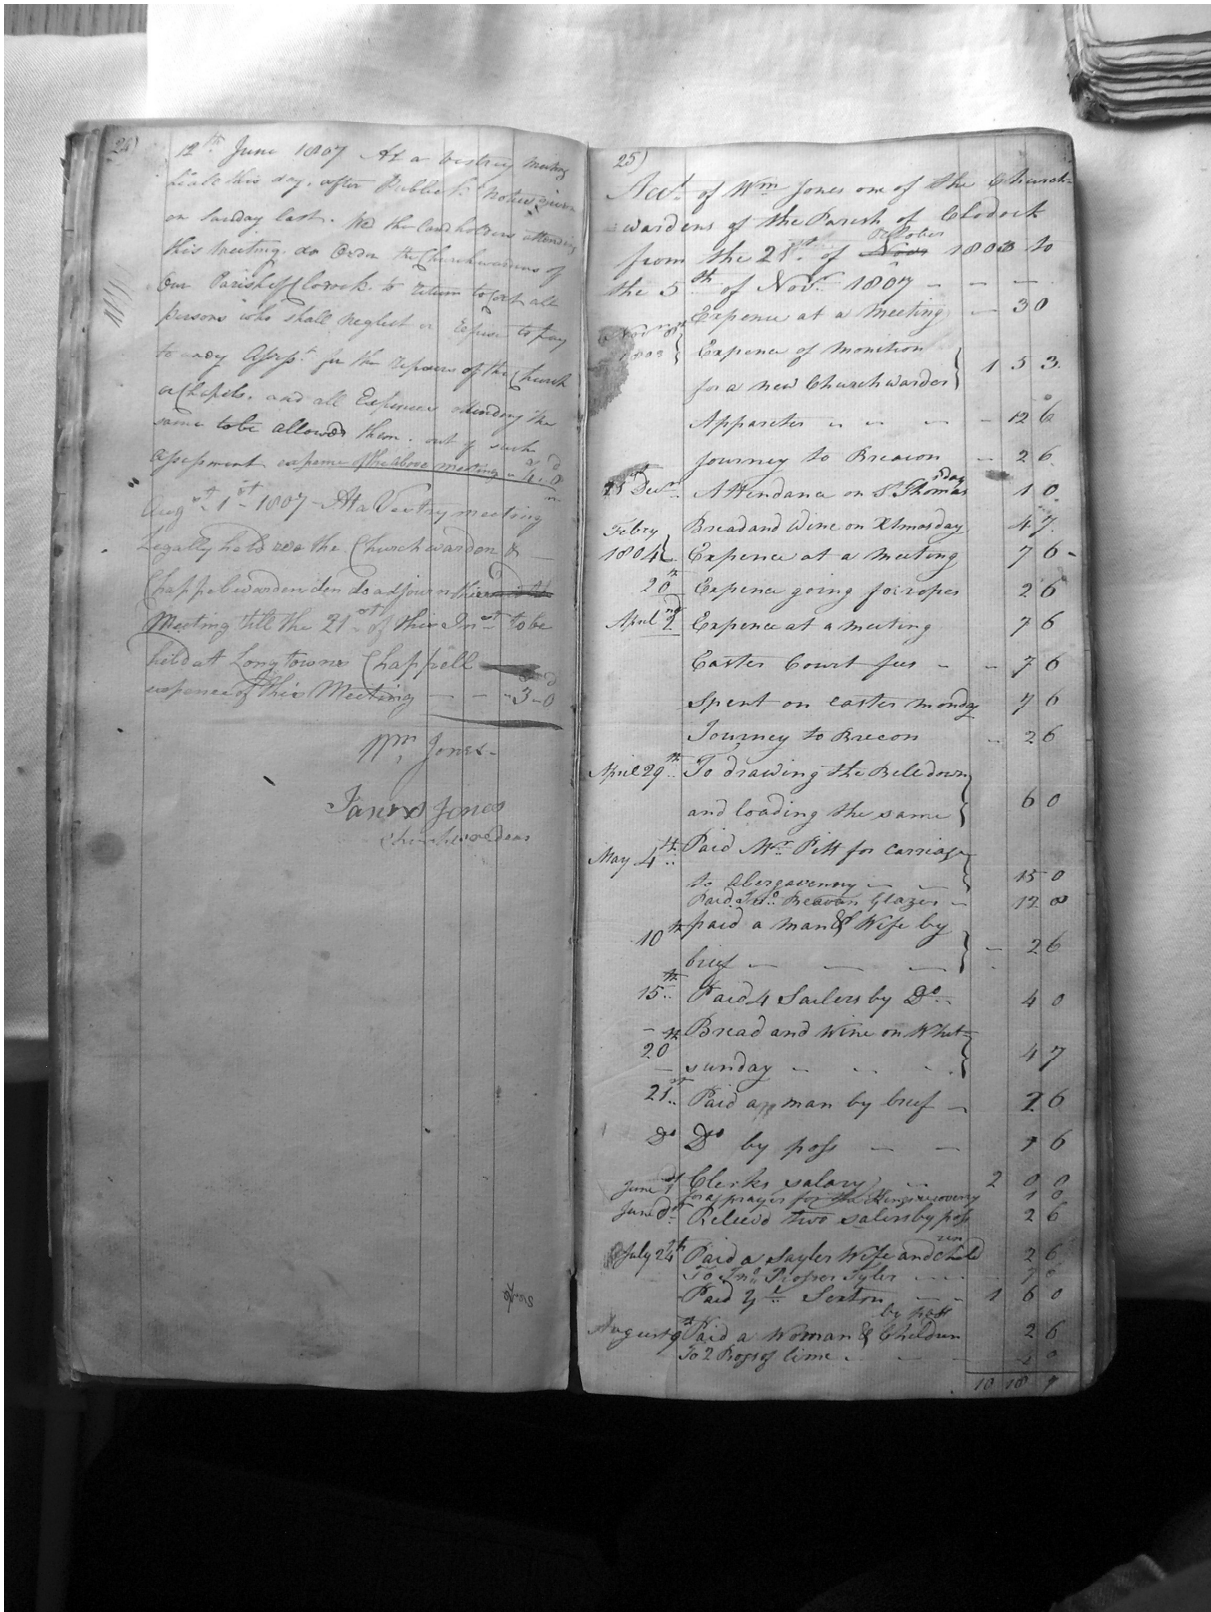 24)
12th June 1807 At a Vestry Meeting
held this day, after Publick Notice given
on Sunday last. We the Landholders attending
this Meeting. do Order the Churchwardens of
Our Parish of Clowck to return to Court all
persons who shall Neglect or refuse to pay
to any Assesst. for the repairs of the Church
or Chapels. and all Expences attending the
same to be allowed them. out of such
assessment expence of the above meeting - 4 - 0
Augst. 1st 1807 - At a Vestry meeting
Legally held wee the Churchwarden &
Chappelwarden den do adjourn this
Meeting till the 21st of this Inst to be
held at Longtown Chappell
expence of this Meeting — — - 3 - 0
Wm. Jones
James Jones
Churchwardens
25)
Acct. of Wm Jones one of the Church-
wardens of the Parish of Clodock
October
from the 21st. of Novr 1803 to
the 5th of Novr. 1807 - — —
Expence at a Meeting — 3 0
Novr 8th
1803 Expence of Monition
for a new Churchwarden 1 5 3
Appareter .. .. .. - 12 6
Journey to Brecon - 2 6
21st Decr. Attendance on St. Thomas's day 1 0
Febry Bread and Wine on Xtmas day 4 7
1804 Expence at a meeting 7 6
20th Expence going for ropes 2 6
April 2nd Expence at a meeting 7 6
Easter Court fees - - 7 6
Spent on easter monday 7 6
Journey to Brecon - 2 6
April 29th To drawing the Bell down
and loading the same 6 0
May 4th Paid Mr. Pitt for carriage
to Abergavenny 15 0
Paid Jno. Beavan Glazer - 12 8
10th paid a man & Wife by
brief — — — - 2 6
15th Paid 4 Sailers by Do 4 0
20th Bread and Wine on Whit=
sunday - .. .. 4 7
21st Paid a man by brief - 2 6
Do Do by pass — — 1 6
June 1st Clerks salary .. 2 0 0
for a prayer for the Kings recovery 1 0
June Do Releevd two salers by pass 2 6
July 24th Paid a Sayler Wife and Children 2 6
To Jno. Prosser Tyler
Paid ye Sexton - - 1 6 0
by pass
August 9th Paid a Woman & Children 2 6
To 2 Bags of lime
10 18 9